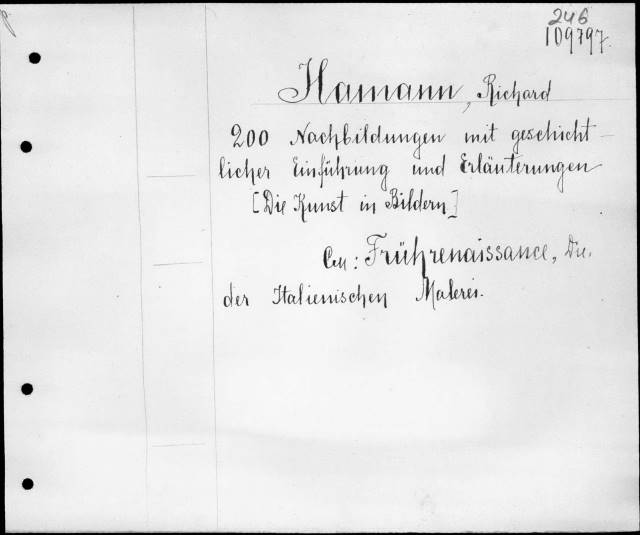 246
109797.
Hamann, Richard
200 Nachbildungen mit geschicht-
licher Einführung und Erläuterungen
[Die Kunst in Bildern]
Cм: Frührenaissance, Die.
der Italienischen Malerei.